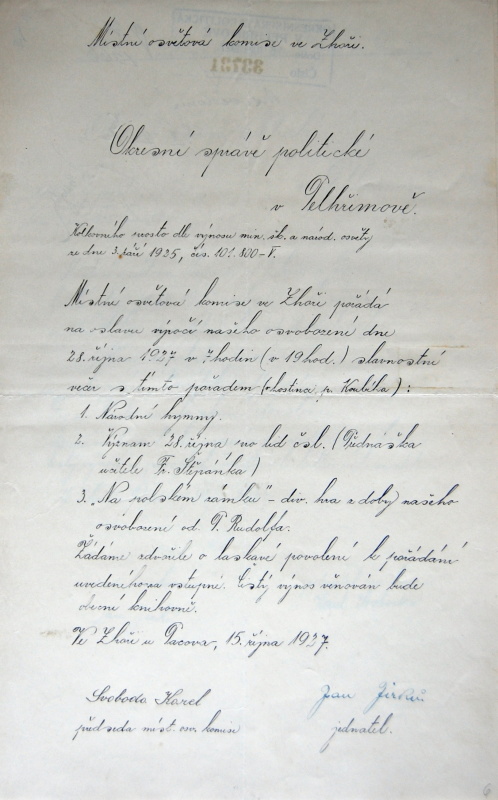 Místní osvětová komise ve Zhoři.
33731
Okresní správě politické
v Pelhřimově.
Kolkového prosto dle výnosu min. šk. a národ. osvěty
ze dne 3. září 1925, čís. 101.800-V.
Místní osvětová komise ve Zhoři pořádá
na oslavu výročí našeho osvobození dne
28. října 1927 v 7 hodin (v 19 hod.) slavnostní
večer s tímto pořadem (v hostinci p. Koubka):
1. Národní hymny.
2. Význam 28. října pro lid čsl. (Přednáška
učitele Fr. Štěpánka)
3. „Na rolském zámku" - div. hra z doby našeho
osvobození od P. Rudolfa.
Žádáme zdvořile o laskavé povolení k pořádání
uvedeného za vstupné. Čistý výnos věnován bude
obecní knihovně.
Ve Zhoři u Pacova, 15. října 1927.
Svoboda Karel Jan Jirků
předseda míst. osv. komise jednatel.
6